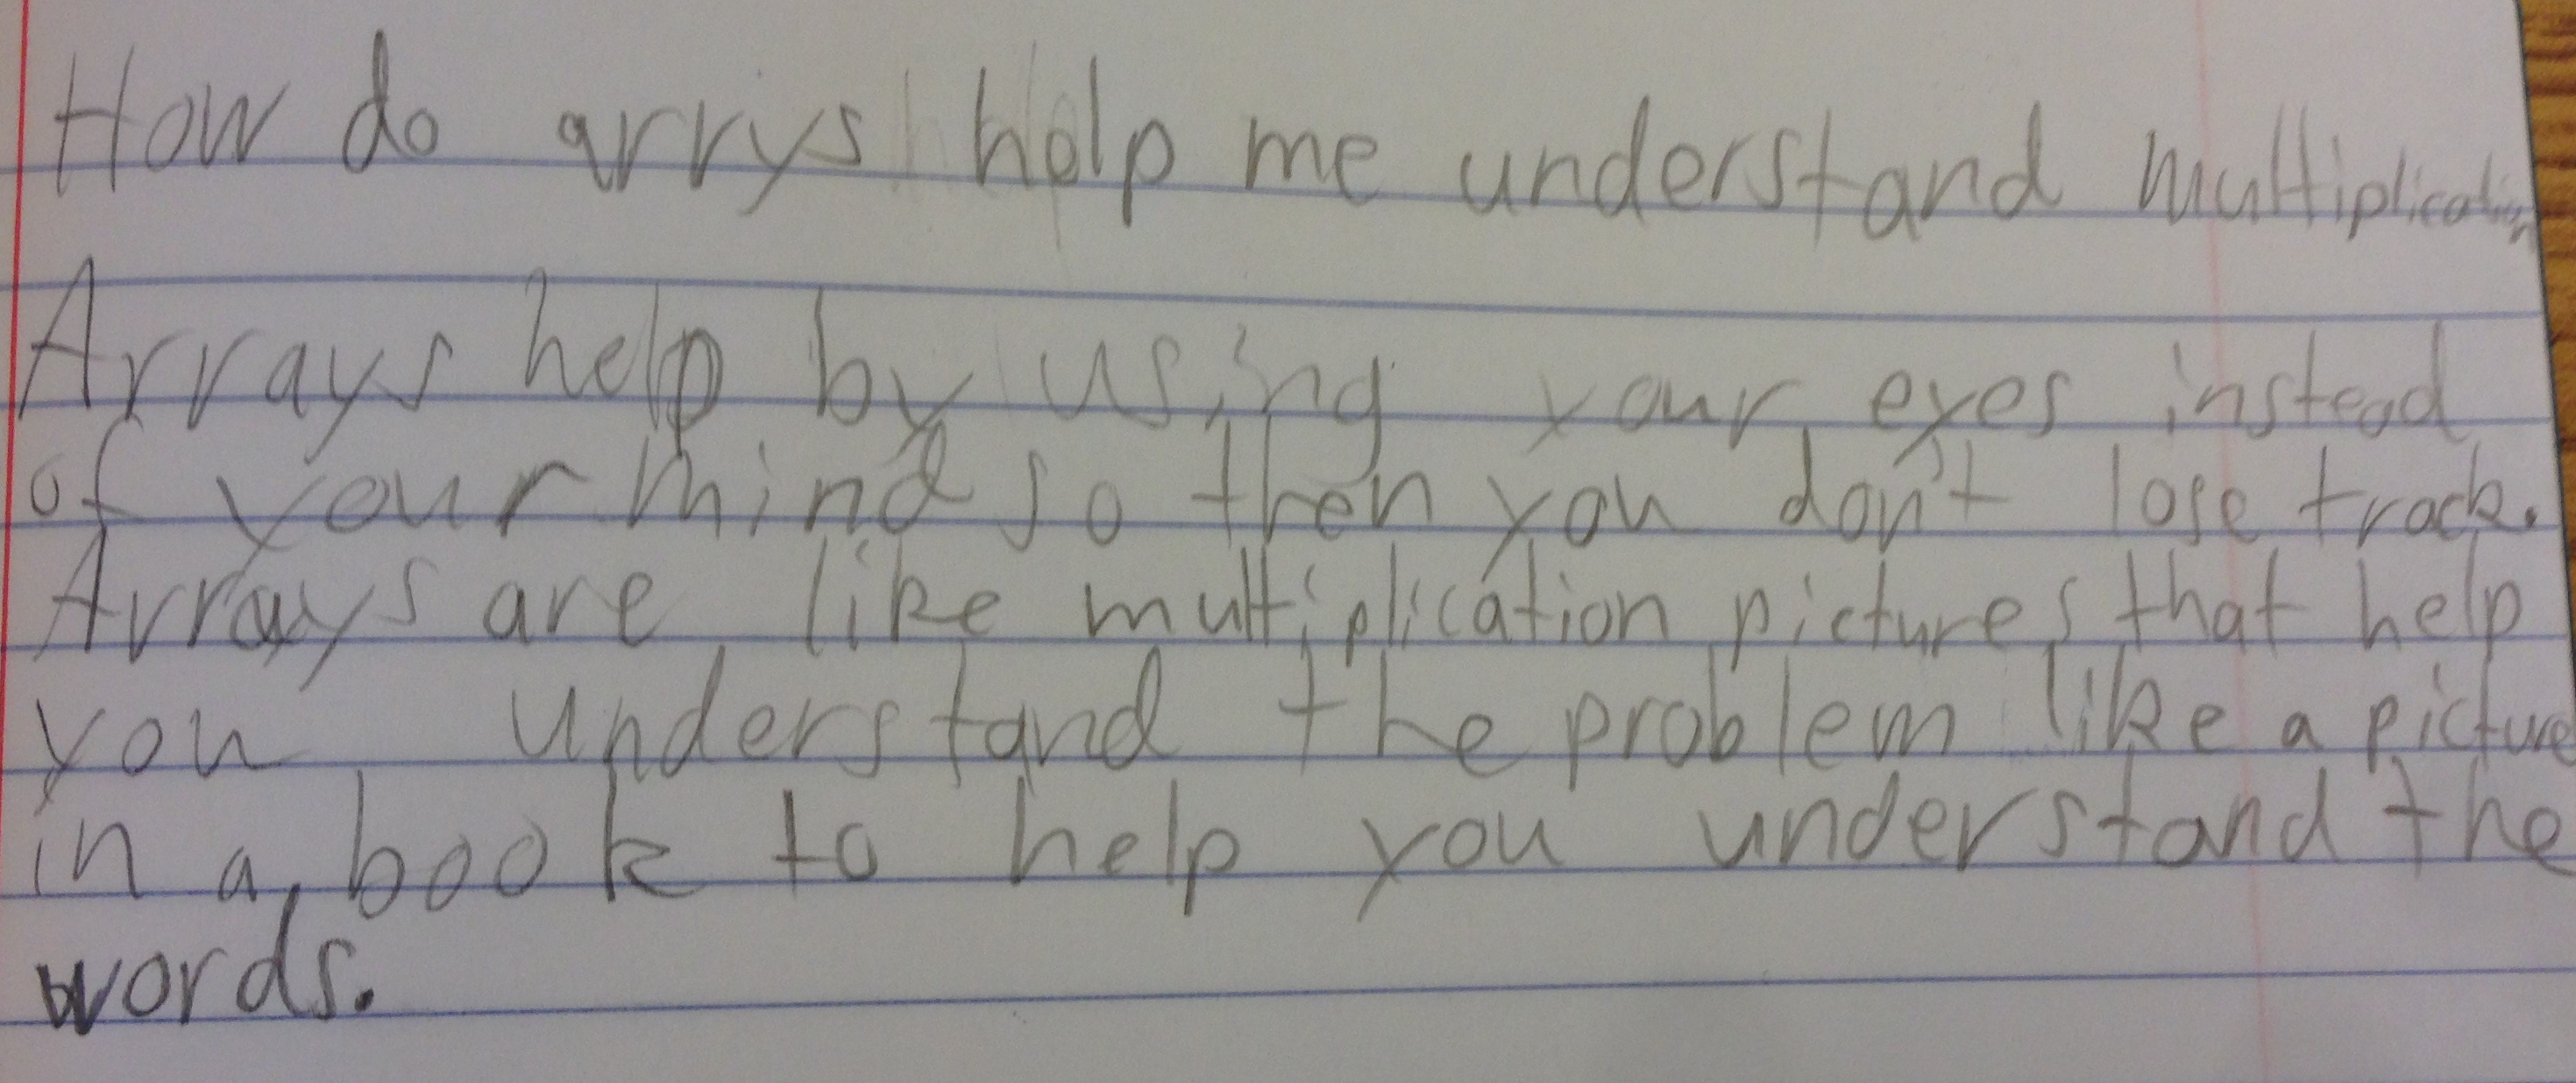 How do arrys help me understand multiplication
Arrays help by using your eyes instead
of your mind so then you don't lose track.
Arrays are like multiplication pictures that help
you understand the problem like a picture
in a book to help you understand the
words.